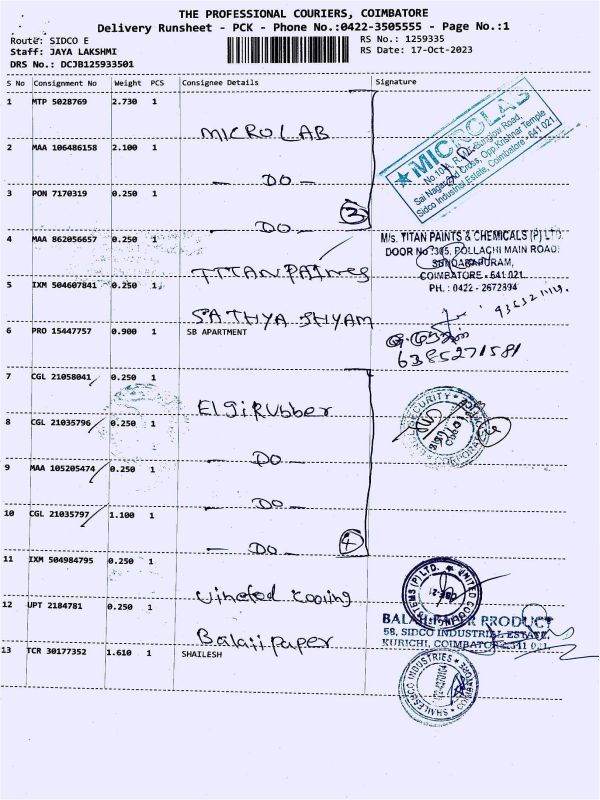 THE PROFESSIONAL COURIERS, COIMBATORE
Delivery Runsheet - PCK - Phone No.:0422-3505555 - Page No.:1
Route: SIDCO E
RS No.: 1259335
Staff: JAYA LAKSHMI
RS Date: 17-Oct-2023
DRS No.: DCJB125933501
S No Consignment No Weight PCS Consignee Details Signature
1 MTP 5028769 2.730 1
MICROLAB
2 MAA 106486158 2.100 1
- DO -
3 PON 7170319 0.250 1
- DO - 3
★ MICROLAB
Sai Nagar 2nd Cross, Opp. Krishnar Temple
Sidco Industrial Estate, Coimbatore - 641 021.
4 MAA 862056657 0.250 1
TITAN PAINTS
M/s. TITAN PAINTS & CHEMICALS (P) LTD.
DOOR No: 305, POLLACHI MAIN ROAD,
SUNDARAPURAM,
COIMBATORE - 641 021.
PH.: 0422 - 2672894
5 IXM 504607841 0.250 1
SATHYA SHYAM
6 PRO 15447757 0.900 1 SB APARTMENT
6385271581
7 CGL 21058041 0.250 1
Elgi Rubber
8 CGL 21035796 0.250 1
- DO -
SECURITY
9 MAA 105205474 0.250 1
- DO -
10 CGL 21035797 1.100 1
- DO - 4
11 IXM 504984795 0.250 1
United Cooling
UNITED COOLING SYSTEMS (P) LTD.
12 UPT 2184781 0.250 1
Balaji paper
BALAJI PAPER PRODUCT
58, SIDCO INDUSTRIAL ESTATE,
KURICHI, COIMBATORE-641 021.
13 TCR 30177352 1.610 1 SHAILESH
SHAILESHCO INDUSTRIES
COIMBATORE